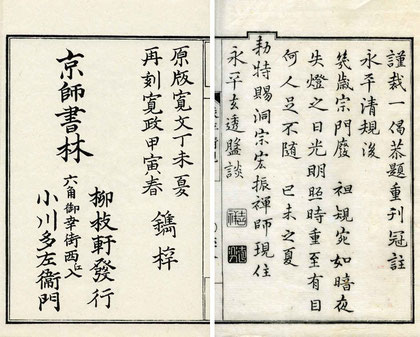 謹裁一偈恭題重刊冠註
永平清規後
幾歳宗門廢 祖規宛如暗夜
失燈之日光明照時重至有目
何人足不随 己未之夏
勅特賜洞宗宏振禅師現住
永平玄透盤談
原版寛文丁未夏
再刻寛政甲寅春 鐫梓
京師書林
柳枝軒發行
六角御幸街西入
小川多左衞門